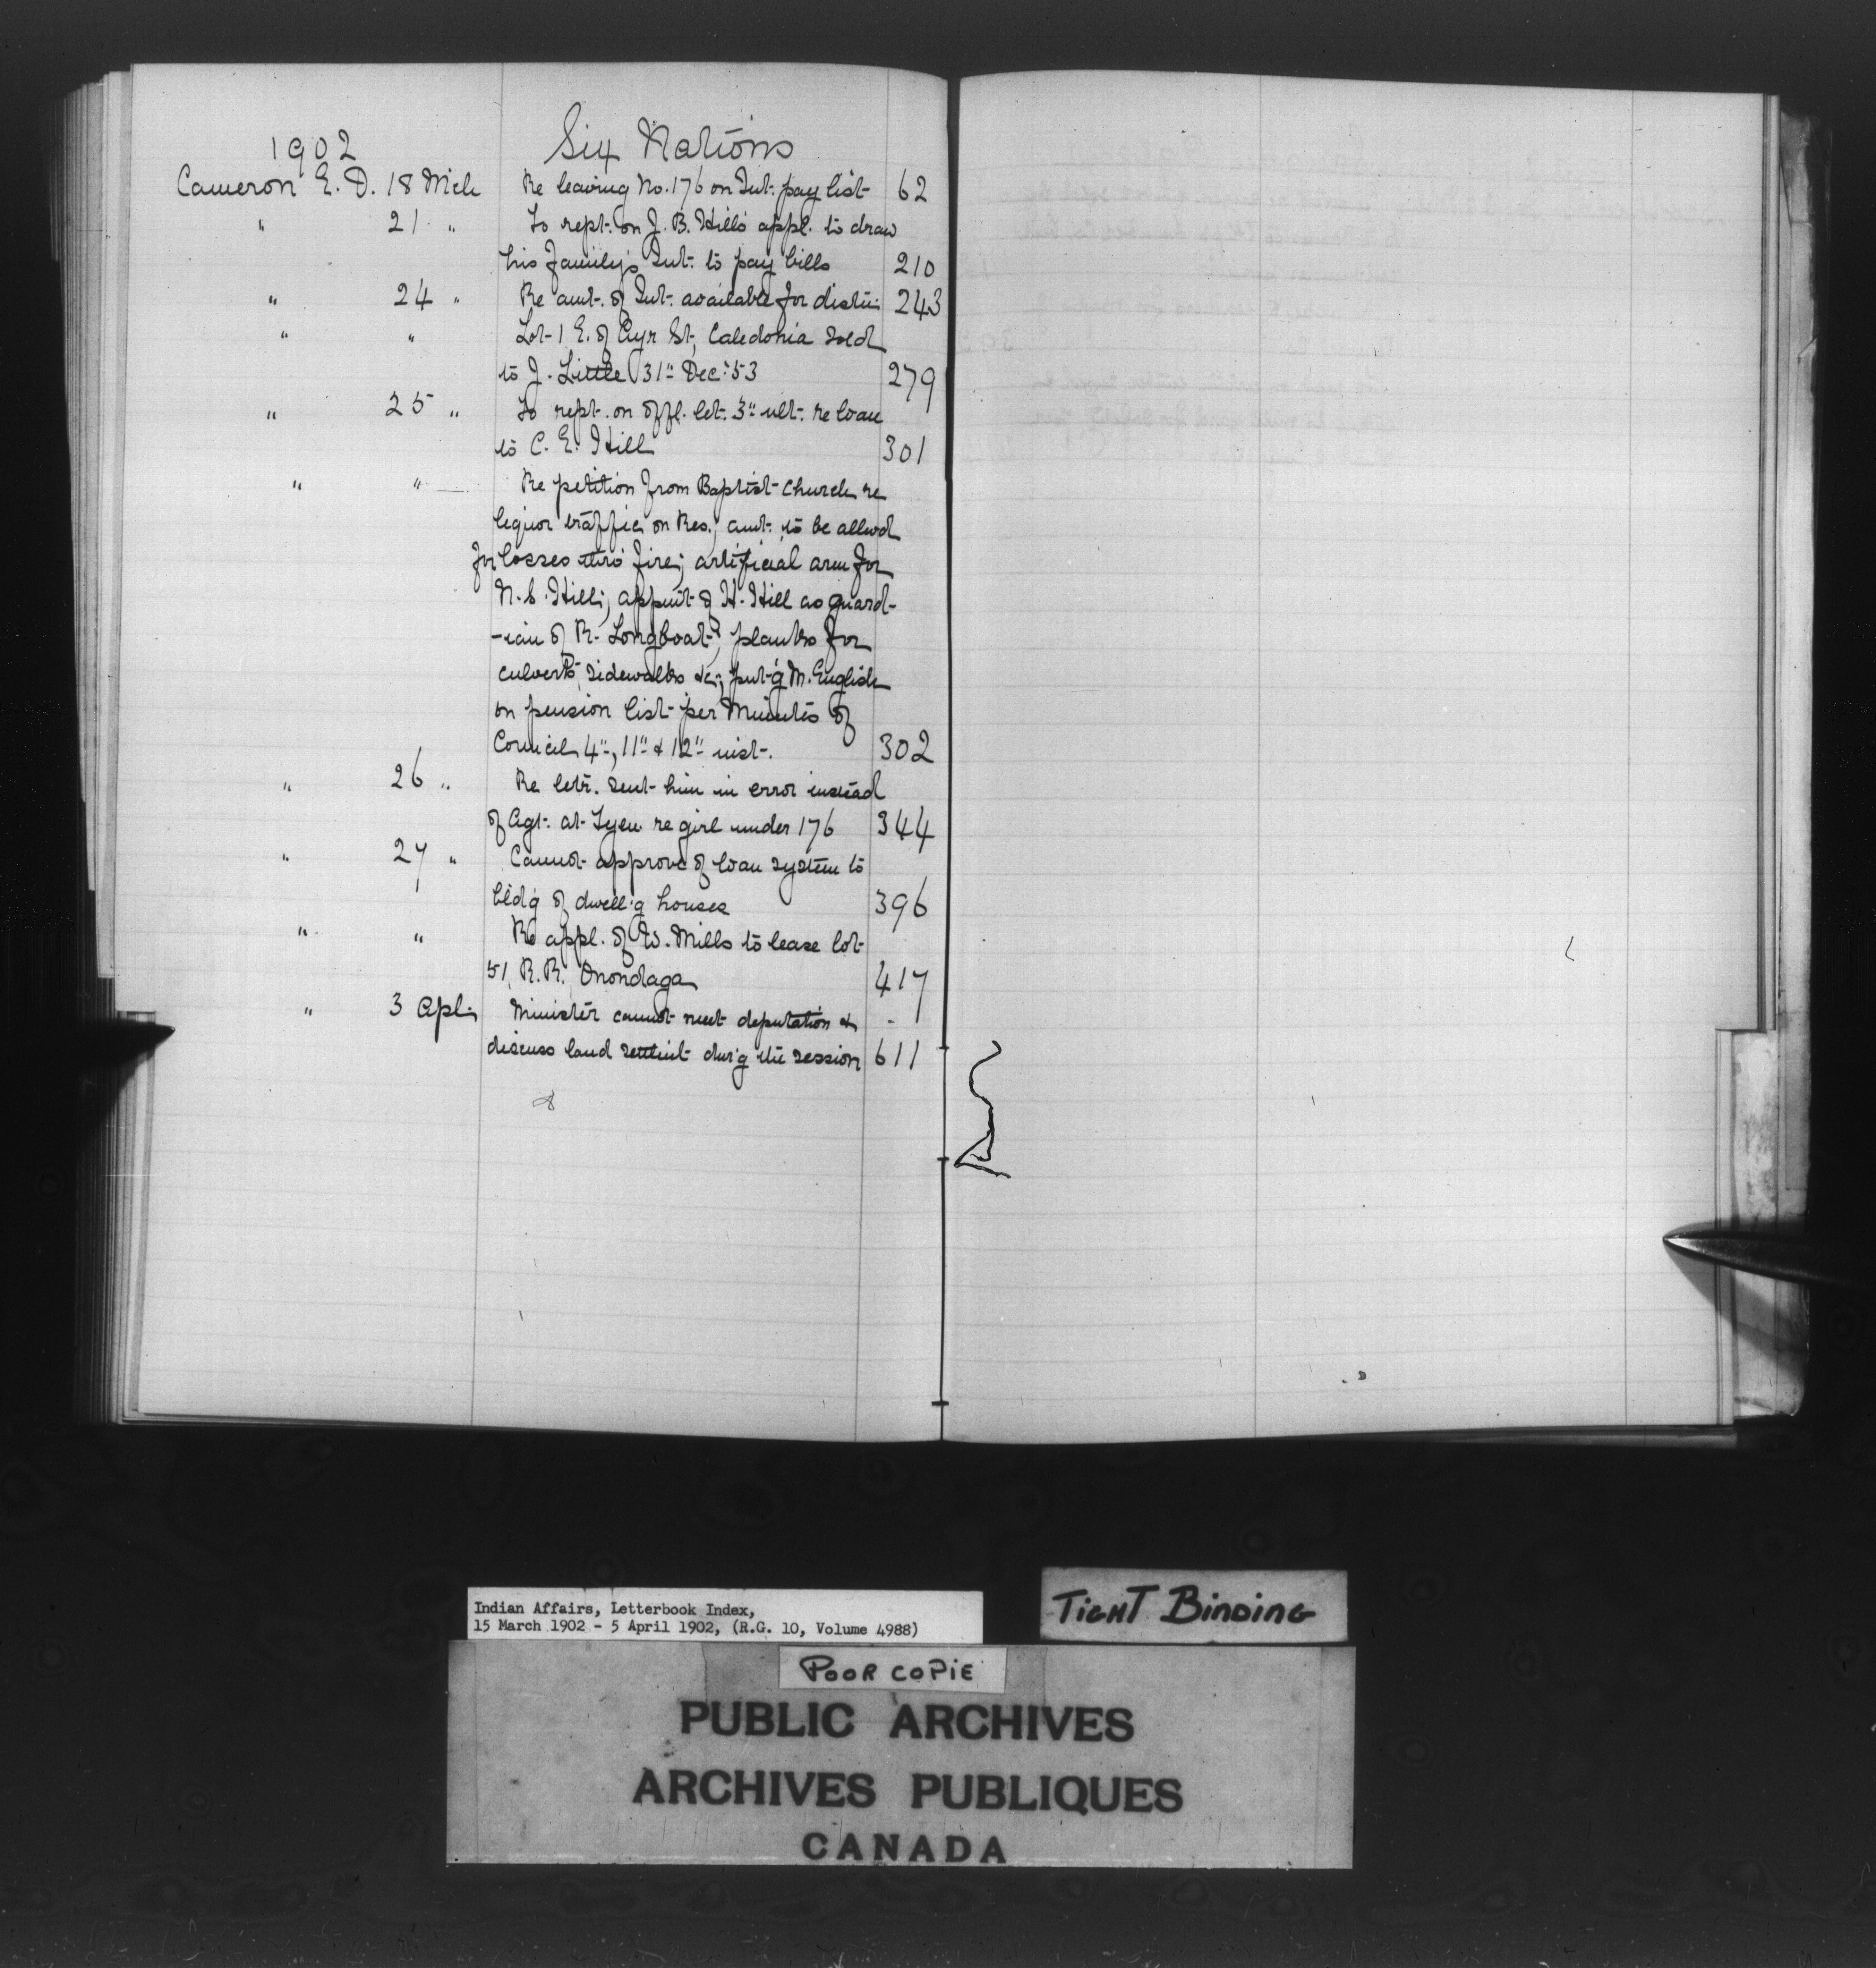 1902 Six Nations
Cameron E. D. 18 Mch Re leaving No. 176 on Int. pay list 62
" 21 " To rept. on J. B. Hill's appl. to draw
his family's Int. to pay bills 210
" 24 " Re amt. of Int. available for distrn 243
" " Lot 1 E. of Ayr St, Caledonia sold
to J. Little 31" Dec: '53 279
" 25 " To rept. on offl. let. 3" ult. re loan
to C. E. Hill 301
" " Re petition from Baptist Church re
liquor traffic on Res.; amt. to be allwd
for losses thro' fire; artificial arm for
N. S. Hill; appmt of H. Hill as guard-
-ian of R. Longboat; planks for
culverts, sidewalks &c; put'g M. English
on pension list per Minutes of
Council 4", 11" & 12" inst. 302
" 26 " Re letr. sent him in error instead
of Agt. at Tyen. re girl under 176 344
" 27 " Cannot approve of loan system to
bldg of dwell'g houses 396
" " Re appl. of W. Mills to lease lot
51, R.R. Onondaga 417
" 3 Apl. Minister cannot meet deputation &
discuss land settlmt dur'g the session 611
Indian Affairs, Letterbook Index,
15 March 1902 - 5 April 1902, (R.G. 10, Volume 4988)
TIGHT BINDING
POOR COPIE
PUBLIC ARCHIVES
ARCHIVES PUBLIQUES
CANADA